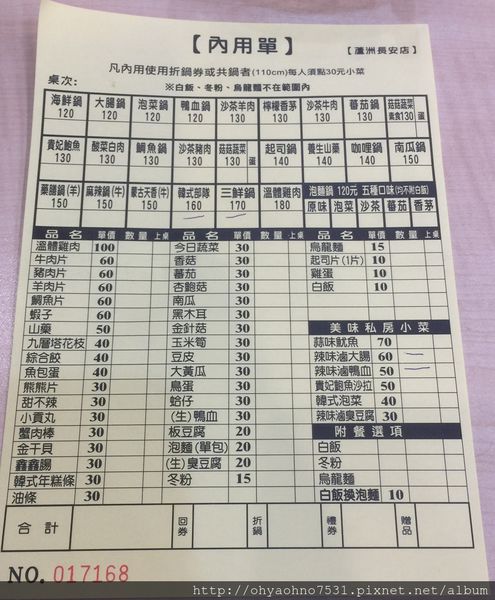 【內用單】
【蘆洲長安店】
凡內用使用折鍋券或共鍋者(110cm)每人須點30元小菜
桌次:
※白飯、冬粉、烏龍麵不在範圍內
海鮮鍋 120 大腸鍋 120 泡菜鍋 120 鴨血鍋 120 沙茶羊肉 130 檸檬香茅 130 沙茶牛肉 130 蕃茄鍋 130 菇菇蔬菜 素食130 蛋
貴妃鮑魚 130 酸菜白肉 130 鯛魚鍋 130 沙茶豬肉 130 菇菇蔬菜 130 蛋 起司鍋 140 養生山藥 140 咖哩鍋 140 南瓜鍋 150
藥膳鍋(羊) 150 麻辣鍋(牛) 150 蒙古天香(牛) 150 韓式部隊 160 三鮮鍋 170 溫體雞肉 180 泡麵鍋 120元 五種口味(均不附白飯)
原味 泡菜 沙茶 蕃茄 香茅
品名 單價 數量 上桌 品名 單價 數量 上桌 品名 單價 數量 上桌
溫體雞肉 100 今日蔬菜 30 烏龍麵 15
牛肉片 60 香菇 30 起司片(1片) 10
豬肉片 60 蕃茄 30 雞蛋 10
羊肉片 60 杏鮑菇 30 白飯 10
鯛魚片 60 南瓜 30
蝦子 60 黑木耳 30
山藥 50 金針菇 30 美味私房小菜
九層塔花枝 40 玉米筍 30 蒜味魷魚 70
綜合餃 40 豆皮 30 辣味滷大腸 60
魚包蛋 40 大黃瓜 30 辣味滷鴨血 50
熊熊片 30 鳥蛋 30 貴妃鮑魚沙拉 50
甜不辣 30 蛤仔 30 韓式泡菜 40
小貢丸 30 (生)鴨血 30 辣味滷臭豆腐 30
蟹肉棒 30 板豆腐 20 附餐選項
金干貝 30 泡麵(單包) 20 白飯
鑫鑫腸 30 (生)臭豆腐 20 冬粉
韓式年糕條 30 冬粉 15 烏龍麵
油條 30 白飯換泡麵 10
合計 回券 折鍋 禮券 贈品
NO. 017168
http://ohyaohno7531.pixnet.net/album